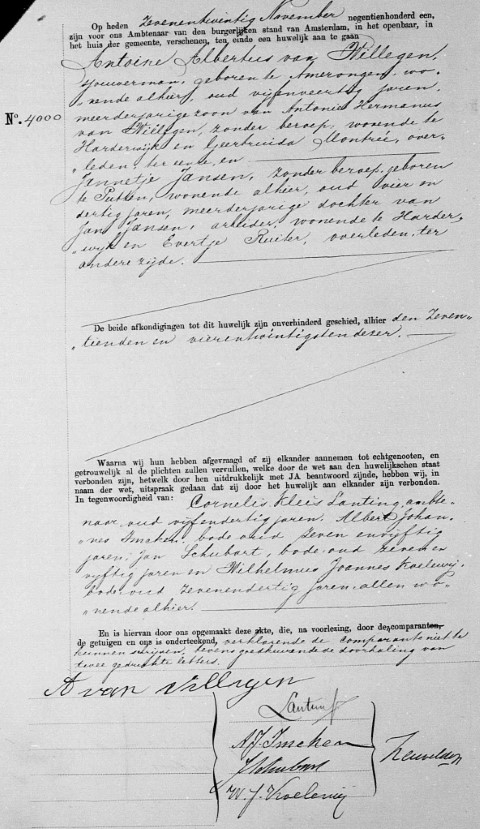 Op heden zevenentwintig November negentienhonderd een,
zijn voor ons Ambtenaar van den burgerlijken stand van Amsterdam, in het openbaar, in
het huis der gemeente, verschenen, ten einde een huwelijk aan te gaan
Antoine Albertus van Willegen,
gouverneur, geboren te Amerongen, wo-
nende alhier, oud vijfenveertig jaren,
No. 4000
meerderjarige zoon van Antonie Hermanus
van Willegen, zonder beroep, wonende te
Harderwijk en Geertruida Montrée, over-
leden, ter eene, en
Jannetje Jansen, zonder beroep, geboren
te Putten, wonende alhier, oud vier en
dertig jaren, meerderjarige dochter van
Jan Jansen, arbeider, wonende te Harder-
wijk en Evertje Ruiter, overleden, ter
andere zijde.
De beide afkondigingen tot dit huwelijk zijn onverhinderd geschied, alhier den zeven-
tienden en vierentwintigsten dezer.
Waarna wij hun hebben afgevraagd of zij elkander aannemen tot echtgenooten, en
getrouwelijk al de plichten zullen vervullen, welke door de wet aan den huwelijkschen staat
verbonden zijn, hetwelk door hen uitdrukkelijk met JA beantwoord zijnde, hebben wij, in
naam der wet, uitspraak gedaan dat zij door het huwelijk aan elkander zijn verbonden.
In tegenwoordigheid van: Cornelis Klees Lanting, ambte-
naar, oud vijfendertig jaren, Albert Johan-
nes Imcken, bode oud zeven envijftig
jaren, Jan Schubart, bode, oud zevenen
vijftig jaren en Wilhelmus Joannes Koelewij,
bode, oud zevenendertig jaren, allen wo-
nende alhier.
En is hiervan door ons opgemaakt deze akte, die, na voorlezing, door de comparanten,
de getuigen en ons is onderteekend, verklarende de comparante niet te
kunnen schrijven, tevens goedkeurende de doorhaling van
twee gedrukte letters.
A van Willegen
Lanting
A J Imcken
J Schubart
W. J. Koelewij